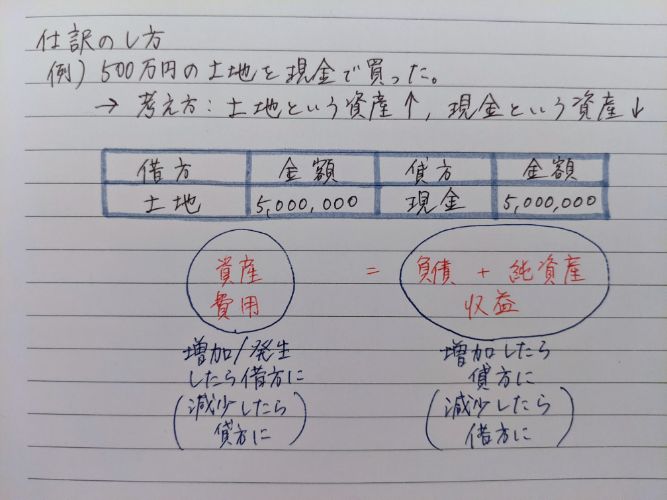 仕訳のし方
例) 500万円の土地を現金で買った。
→ 考え方: 土地という資産↑, 現金という資産↓
借方 金額 貸方 金額
土地 5,000,000 現金 5,000,000
資産 = 負債 + 純資産
費用 収益
増加/発生 増加したら
したら借方に 貸方に
(減少したら (減少したら
貸方に) 借方に)